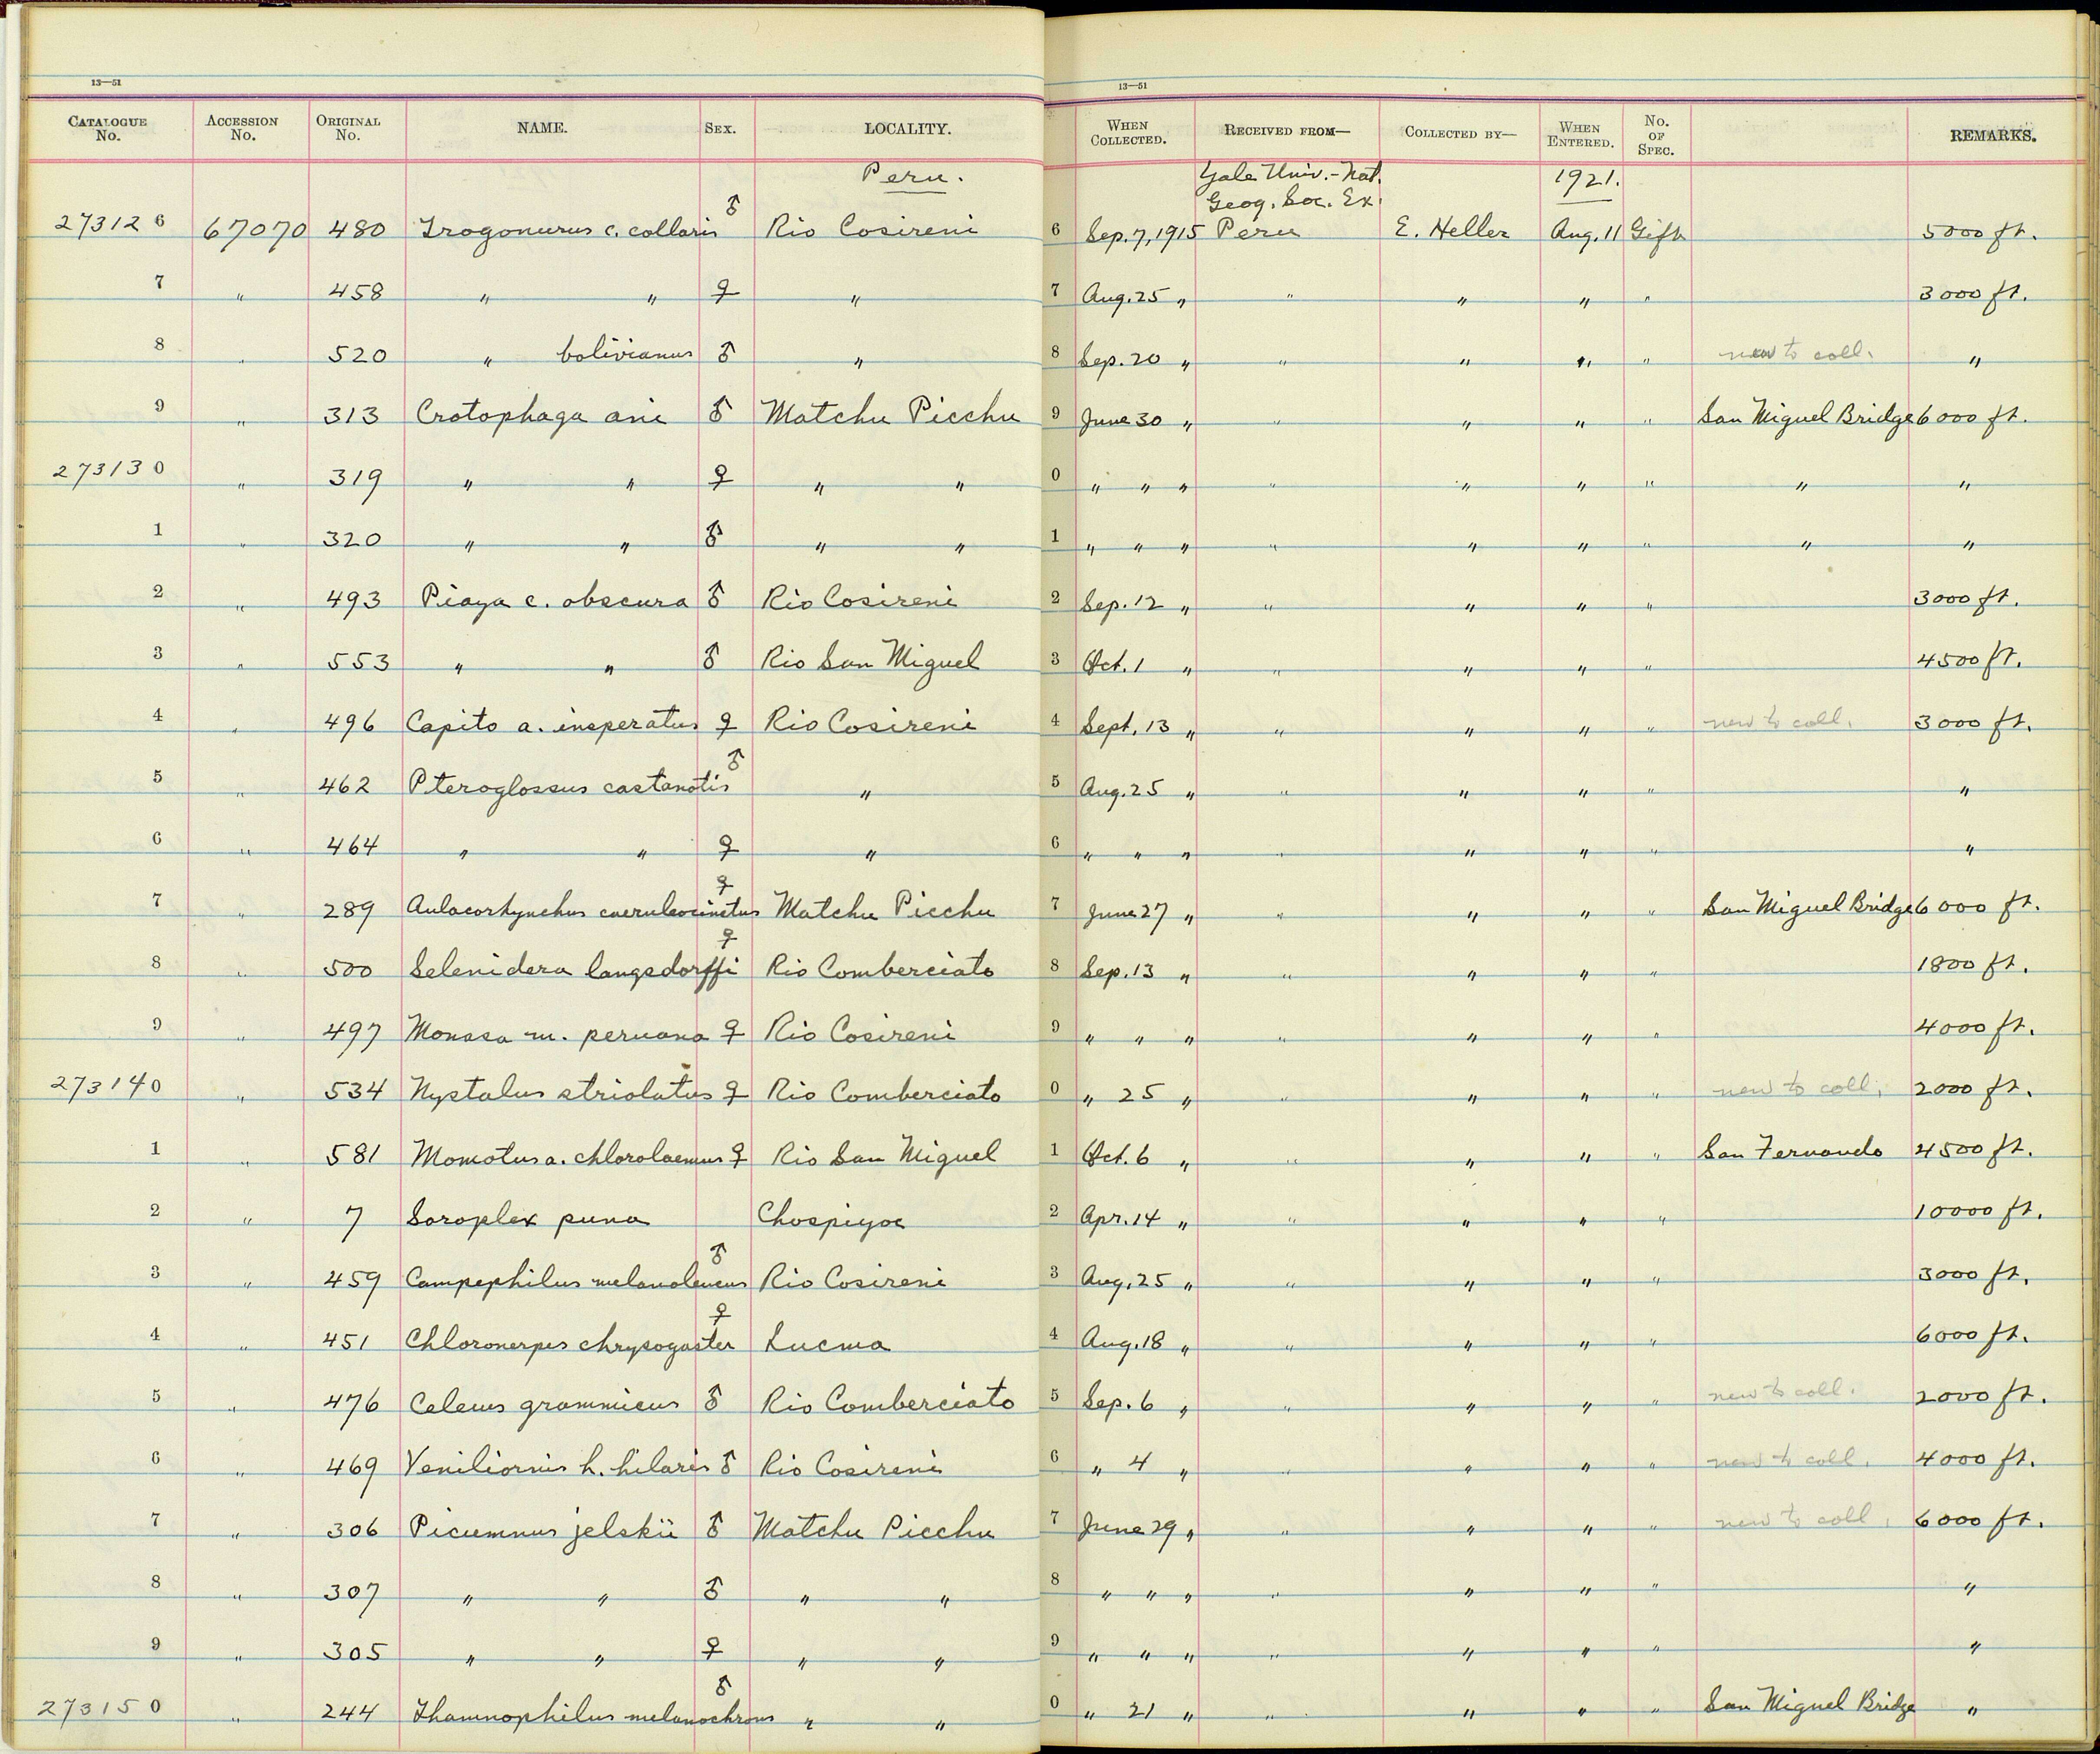 13—51
13—51
CATALOGUE No. ACCESSION No. ORIGINAL No. NAME. SEX. LOCALITY. WHEN COLLECTED. RECEIVED FROM— COLLECTED BY— WHEN ENTERED. No. OF SPEC. REMARKS.
Peru. Yale Univ.-Nat. 1921.
Geog. Soc. Ex.
273126 67070 480 Trogonurus c. collaris ♂ Rio Cosireni 6 Sep. 7, 1915 Peru E. Heller Aug. 11 Gift 5000 ft.
7 " 458 " " ♀ " 7 Aug. 25 " " " " " 3000 ft.
8 " 520 " bolivianus ♂ " 8 Sep. 20 " " " " " new to coll. "
9 " 313 Crotophaga ani ♂ Matchu Picchu 9 June 30 " " " " " San Miguel Bridge 6000 ft.
273130 " 319 " " ♀ " " 0 " " " " " " " " "
1 " 320 " " ♂ " " 1 " " " " " " " " "
2 " 493 Piaya c. obscura ♂ Rio Cosireni 2 Sep. 12 " " " " " 3000 ft.
3 " 553 " " ♂ Rio San Miguel 3 Oct. 1 " " " " " 4500 ft.
4 " 496 Capito a. insperatus ♀ Rio Cosireni 4 Sept. 13 " " " " " new to coll. 3000 ft.
5 " 462 Pteroglossus castanotis ♂ " 5 Aug. 25 " " " " " "
6 " 464 " " ♀ " 6 " " " " " " " "
7 " 289 Aulacorhynchus caeruleocinctus ♀ Matchu Picchu 7 June 27 " " " " " San Miguel Bridge 6000 ft.
8 " 500 Selenidera langsdorffi ♀ Rio Comberciato 8 Sep. 13 " " " " " 1800 ft.
9 " 497 Monasa m. peruana ♀ Rio Cosireni 9 " " " " " " " 4000 ft.
273140 " 534 Nystalus striolatus ♀ Rio Comberciato 0 " 25 " " " " " new to coll. 2000 ft.
1 " 581 Momotus a. chlorolaemus ♀ Rio San Miguel 1 Oct. 6 " " " " " San Fernando 4500 ft.
2 " 7 Soroplex puna Chospiyoc 2 Apr. 14 " " " " " 10000 ft.
3 " 459 Campephilus melanoleucus ♂ Rio Cosireni 3 Aug. 25 " " " " " 3000 ft.
4 " 451 Chloronerpes chrysogaster ♀ Lucma 4 Aug. 18 " " " " " 6000 ft.
5 " 476 Celeus grammicus ♂ Rio Comberciato 5 Sep. 6 " " " " " new to coll. 2000 ft.
6 " 469 Veniliornis h. hilaris ♂ Rio Cosireni 6 " 4 " " " " " new to coll. 4000 ft.
7 " 306 Picumnus jelskii ♂ Matchu Picchu 7 June 29 " " " " " new to coll. 6000 ft.
8 " 307 " " ♂ " " 8 " " " " " " " "
9 " 305 " " ♀ " " 9 " " " " " " " "
273150 " 244 Thamnophilus melanochrous ♂ " " 0 " 21 " " " " " San Miguel Bridge "